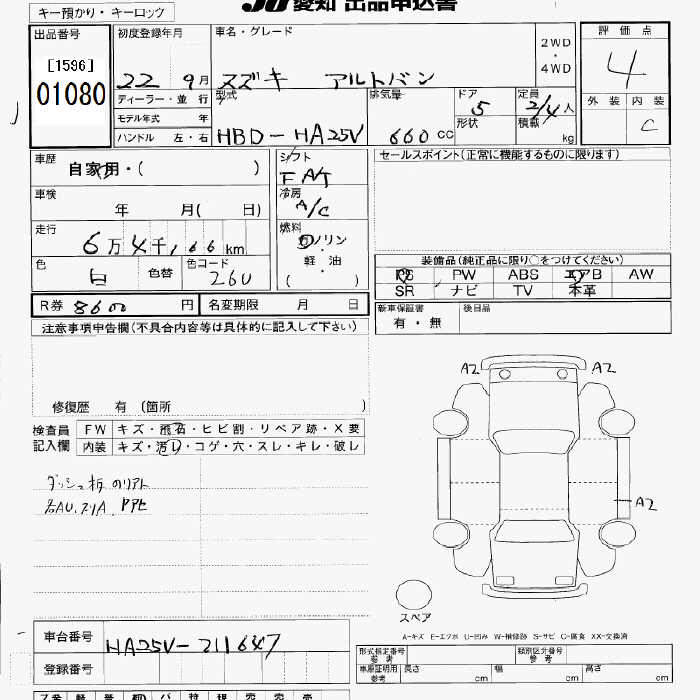 JU 愛知 出品申込書
キー預かり・キーロック
出品番号
[1596]
01080
初度登録年月
22 9月
ディーラー・並行
モデル年式 年
ハンドル 左・右
車名・グレード
スズキ アルトバン
2WD
4WD
型式
HBD-HA25V
排気量
660 cc
ドア
5
形状
定員
2/4人
積載
kg
評価点
4
外装 内装
C
車歴
自家用・( )
車検
年 月( 日)
走行
6万4千,166km
色
白
色替
色コード
26U
シフト
F AT
冷房
A/C
燃料
ガソリン
・
軽・油
( )
R券 8600 円
名変期限 月 日
セールスポイント(正常に機能するものに限ります)
装備品(純正品に限り○をつけてください)
PS PW ABS エアB AW
SR ナビ TV 本革
新車保証書
有・無
後日品
注意事項申告欄(不具合内容等は具体的に記入して下さい)
修復歴 有(箇所 )
検査員
記入欄
FW キズ・飛石・ヒビ割・リペア跡・X要
内装 キズ・汚れ・コゲ・穴・スレ・キレ・破レ
A2
A2
A2
スペア
A-キズ E-エクボ U-凹み W-補修跡 S-サビ C-腐食 XX-交換済
車台番号 HA25V-711647
登録番号
形式指定番号
参考
類別区分番号
参考
車庫証明用
参考
長さ cm
幅 cm
高さ cm